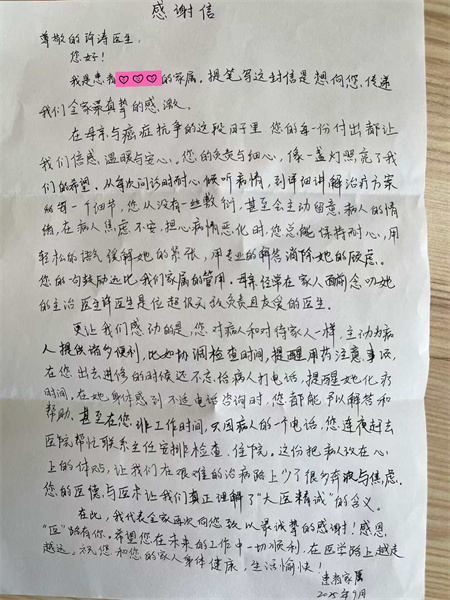 感谢信
尊敬的许涛医生：
您好！
我是患者♡♡♡的家属。提笔写这封信是想向您传递
我们全家最真挚的感激。
在母亲与癌症抗争的这段日子里，您的每一份付出都让
我们倍感温暖与安心。您的负责与细心，像一盏灯照亮了我
们的希望。从每次问诊时耐心倾听病情，到详细讲解治疗方案
的每一个细节，您从没有一丝敷衍，甚至会主动留意病人的情
绪，在病人焦虑不安、担心病情恶化时，您总能保持耐心，用
轻松的语气缓解她的紧张，用专业的解答消除她的顾虑。
您的句鼓励远比我们家属的管用。母亲经常在家人面前念叨她
的主治医生许医生是位超级又敬负责且友爱的医生。
更让我们感动的是，您对病人和对待家人一样，主动为病
人提供诸多便利，比如协调检查时间，提醒用药注意事项，
在您出去进修的时候还不忘给病人打电话，提醒她化疗
时间，在她身体感到不适电话咨询时，您都能予以解答和
帮助。甚至在您非工作时间，只因病人的一个电话，您连夜赶去
医院帮忙联系主任安排检查、住院。这份把病人放在心
上的体贴，让我们在艰难的治病路上少了很多奔波与焦虑。
您的医德与医术让我们真正理解了“大医精诚”的含义。
在此，我代表全家再次向您致以最诚挚的感谢！感恩
“医”路有你。希望您在未来的工作中一切顺利，在医学路上越走
越远，祝您和您的家人身体健康，生活愉快！
患者家属
2025年9月